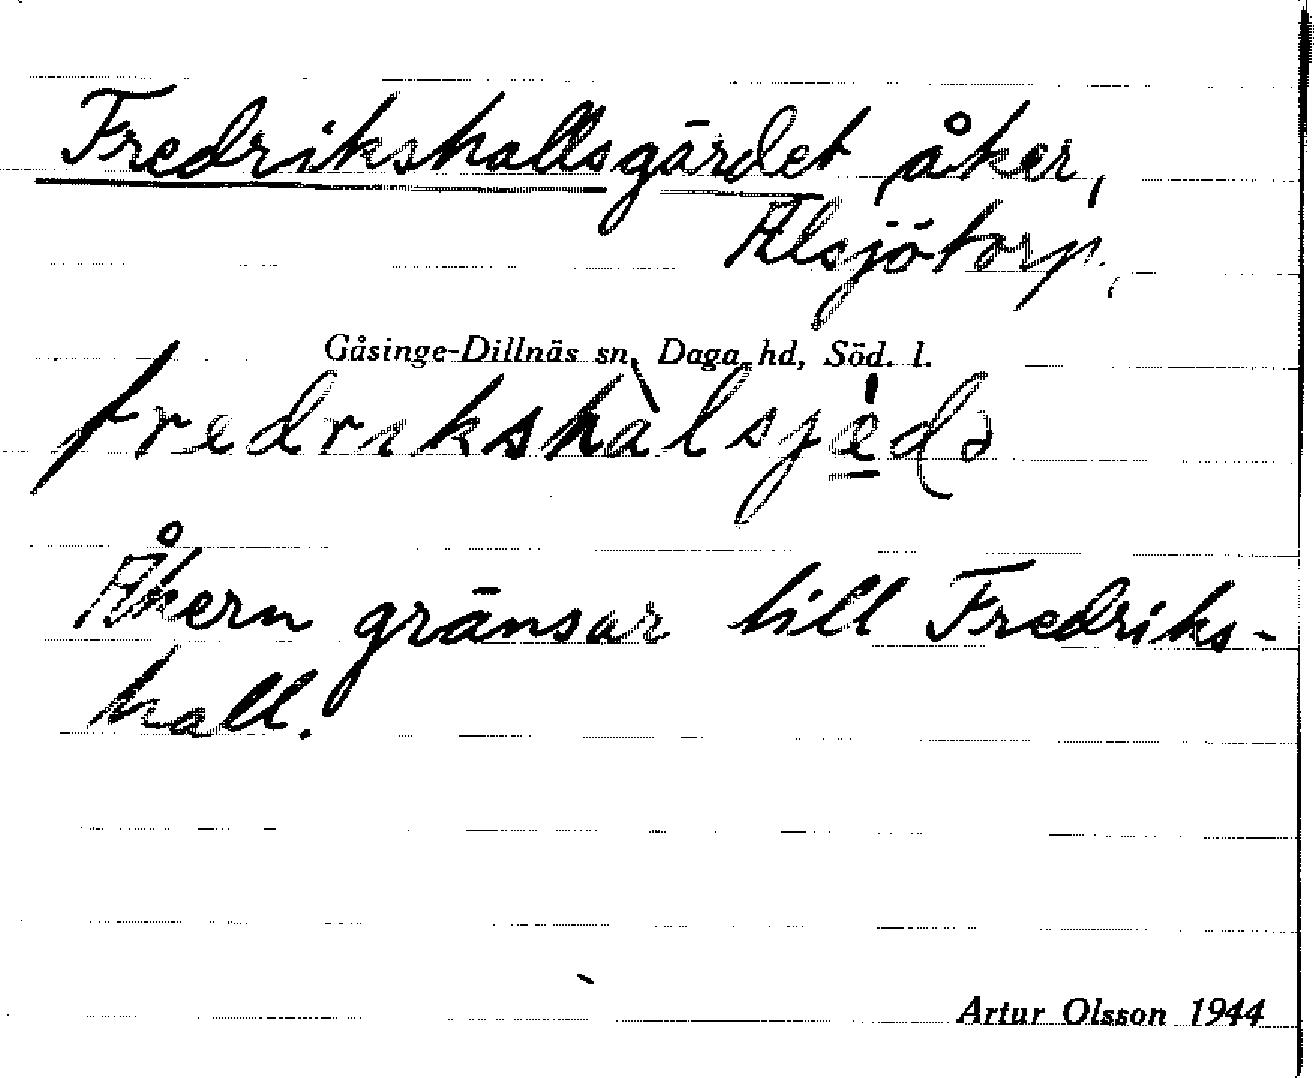 Fredrikshallsgärdet, åker,
Älsjötorp,
Gåsinge-Dillnäs sn, Daga hd, Söd. l.
fredrikshàlsjé̱da
Åkern gränsar till Fredriks-
hall.
Artur Olsson 1944